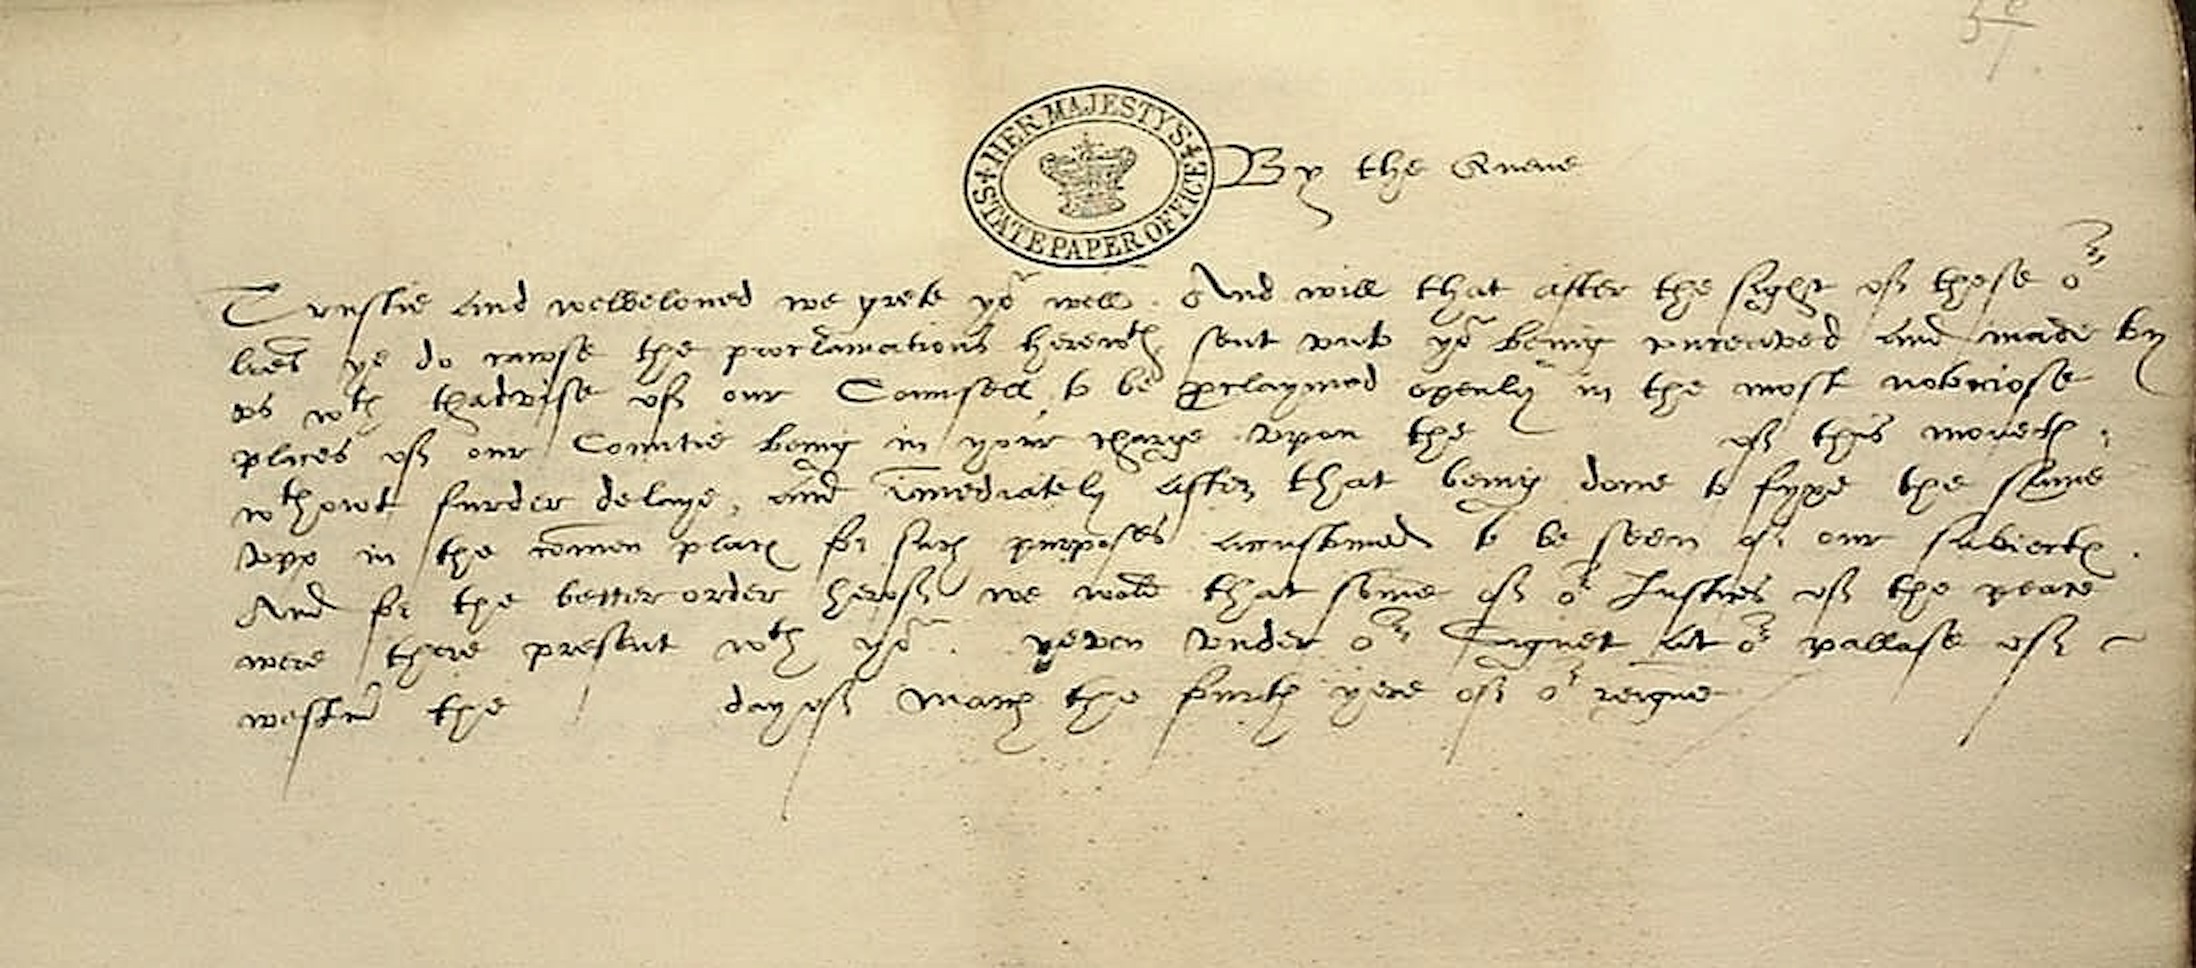 HER MAJESTYS STATE PAPER OFFICE
By the Quene
Trustie and welbeloued we grete yoᵘ well. And will that after the sight of these oʳ
lres ye do cawse the proclamations herewᵗʰ sent vnto yoᵘ being and made by
vs wᵗʰ thadvise of our Counsell, to be proclaymed openly in the most notoriose
places of our Countie being in your charge vpon the of this moneth,
wᵗʰowt furder delaye, and imediately after that being done to fyxe the same
vpp in the comen place for such purposes accustomed to be seen of our subiects.
And for the better order herof we wold that some of oʳ Justices of the peace
were there present wᵗʰ yoᵘ. yeven vnder oʳ Signet at oʳ pallase of
westmʳ the day of March the fourth yere of oʳ reigne